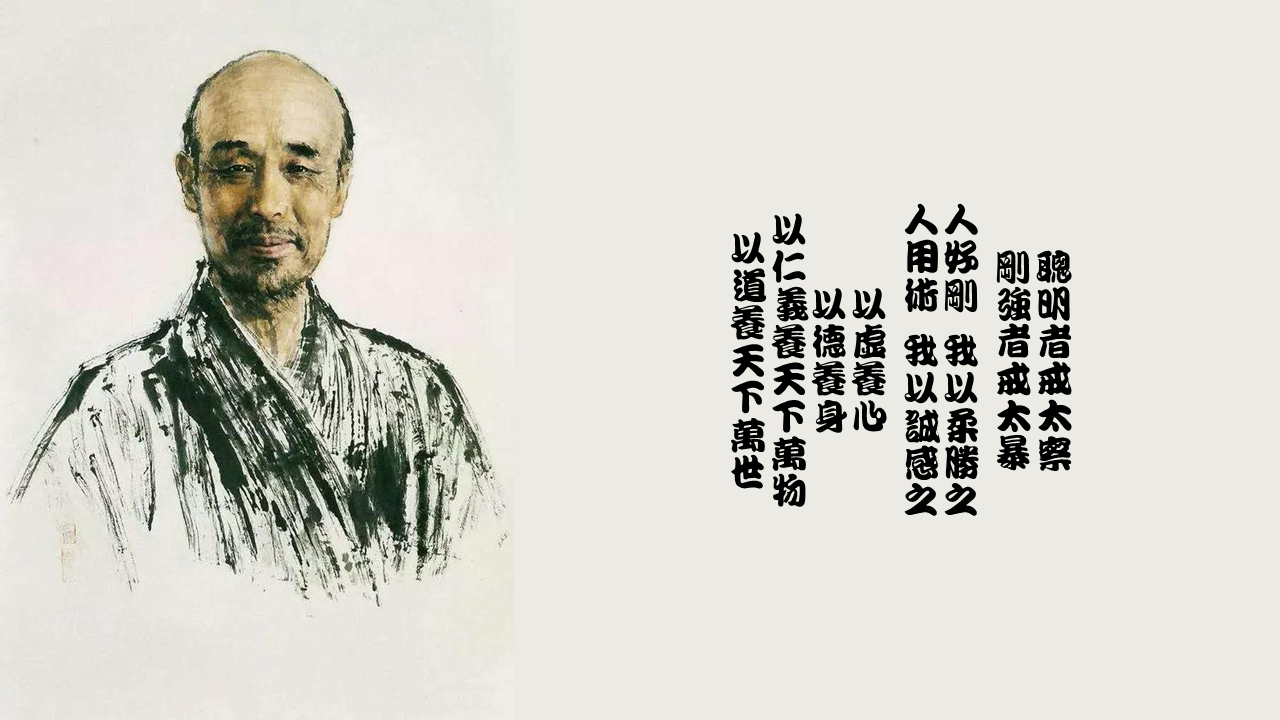 聰明者戒太察
剛強者戒太暴
人好剛 我以柔勝之
人用術 我以誠感之
以虛養心
以德養身
以仁義養天下萬物
以道養天下萬世